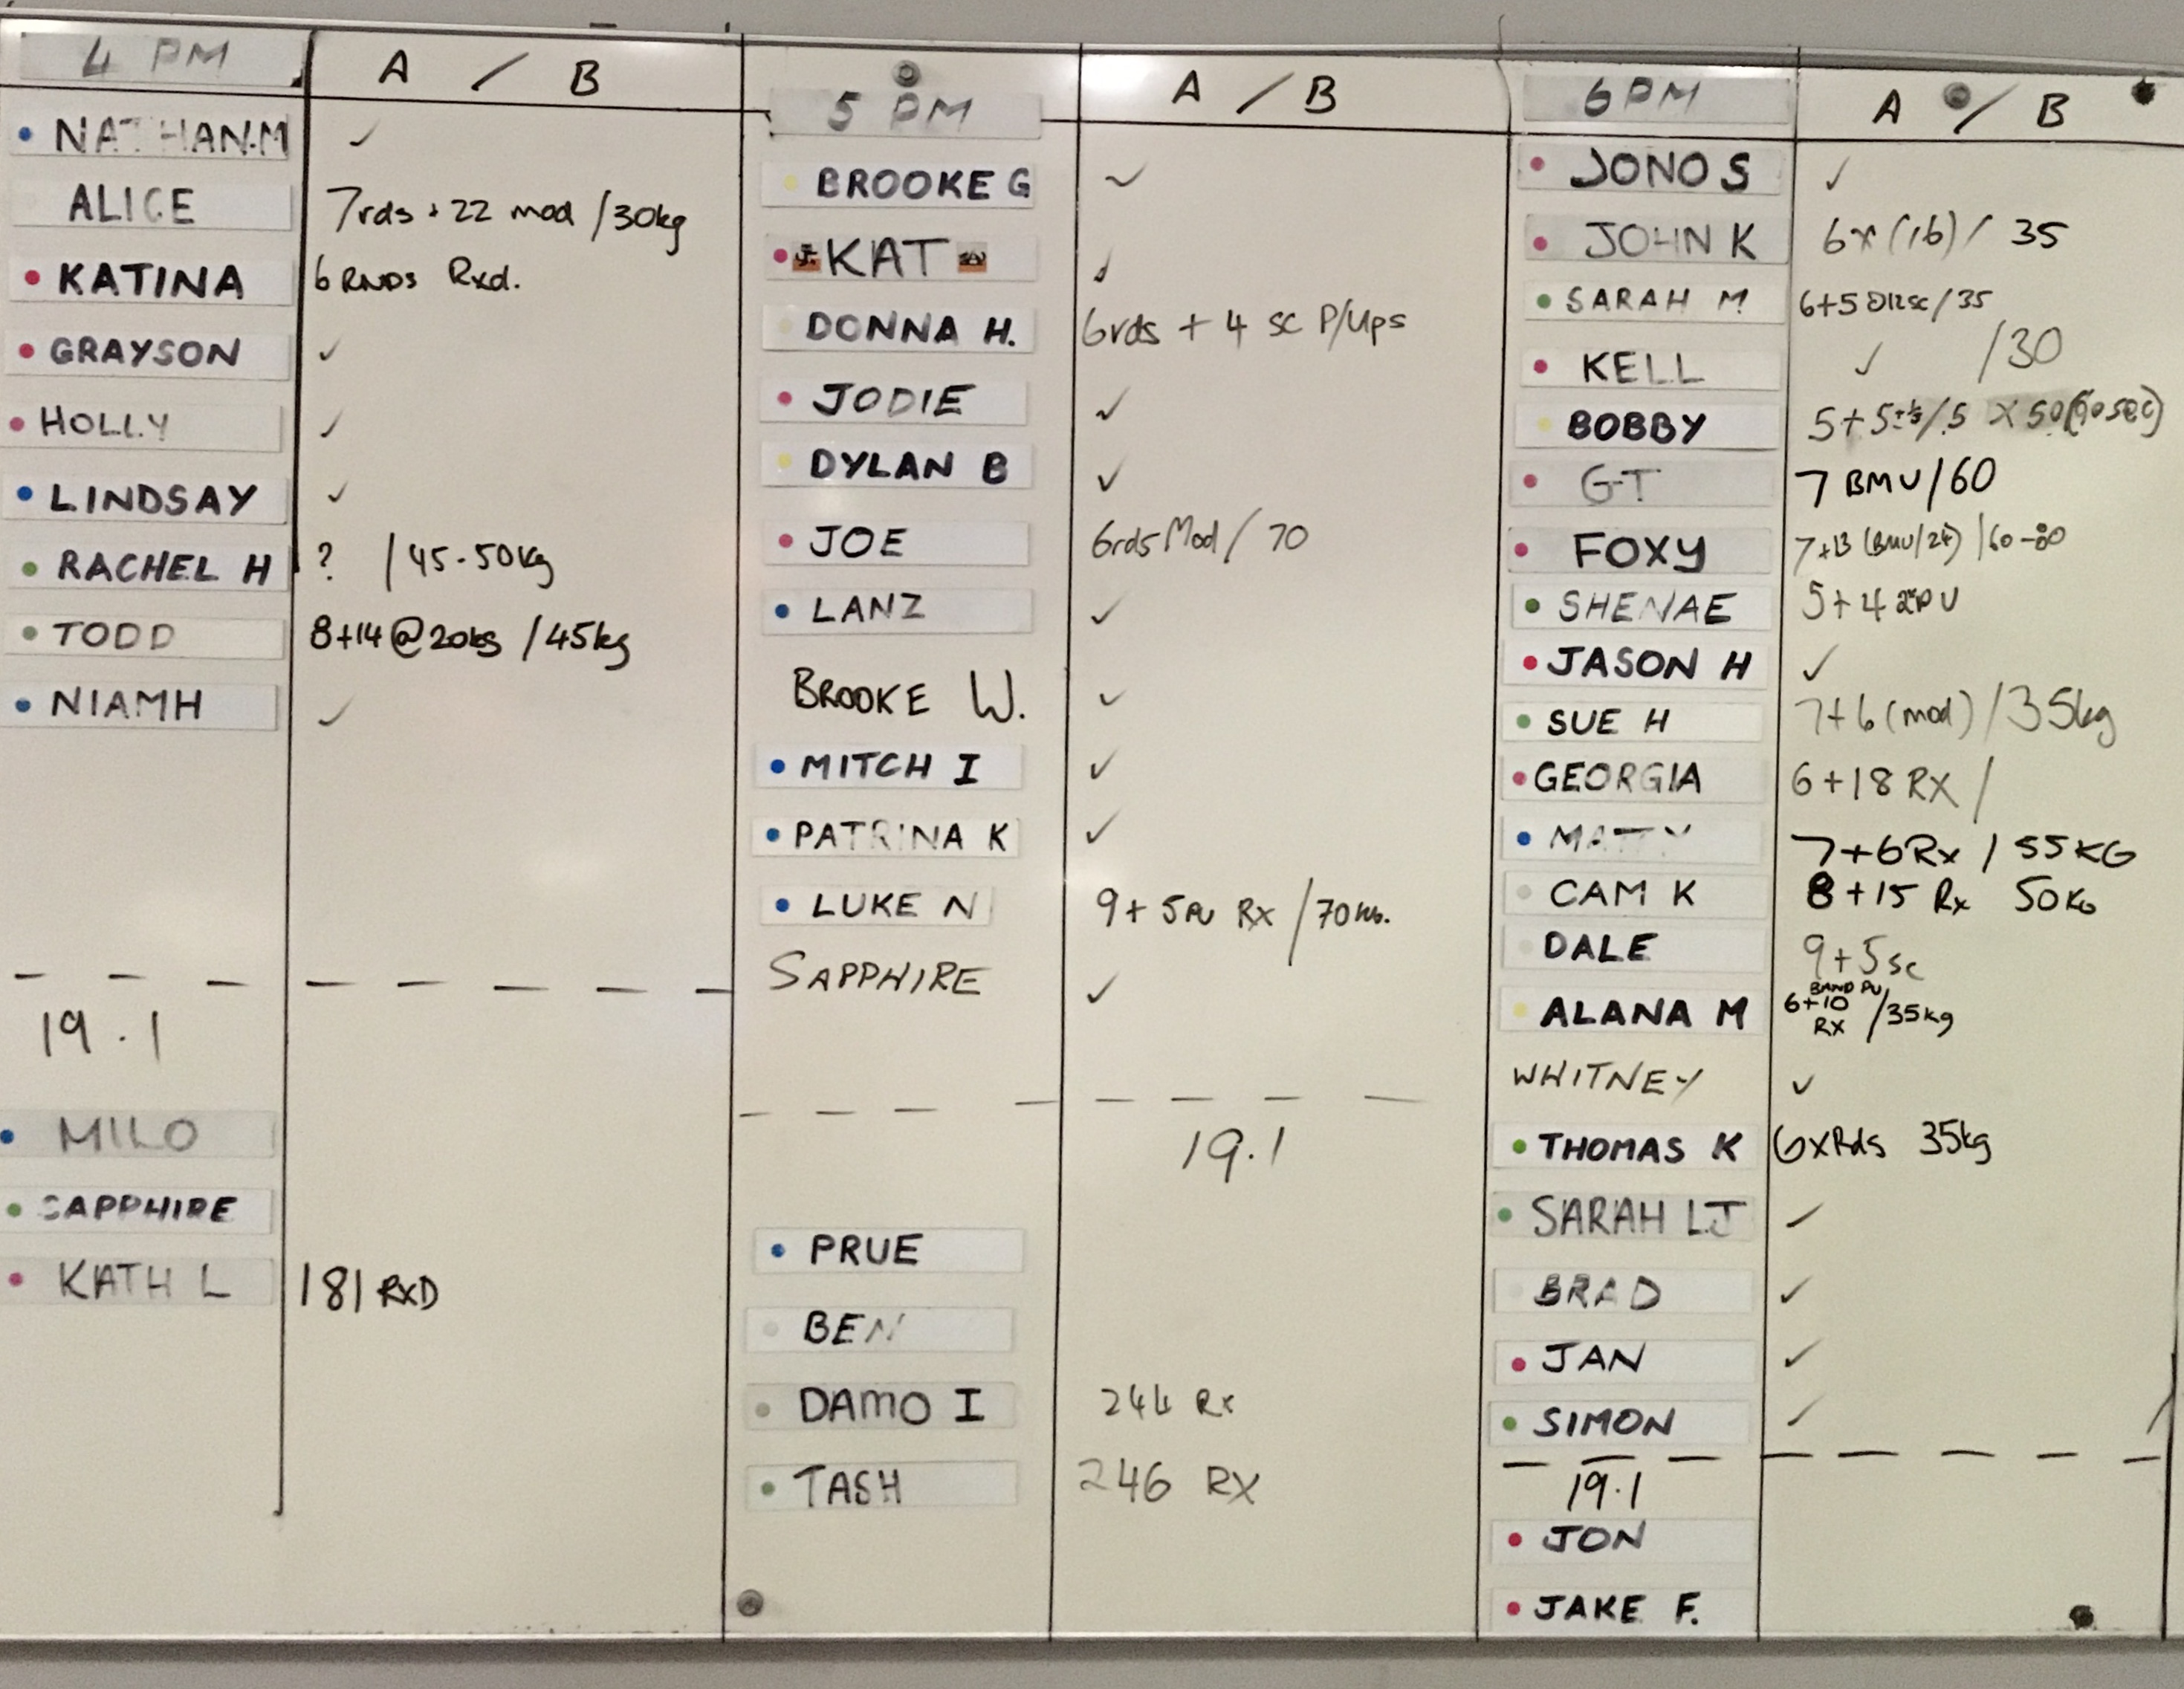 4 PM
A / B
NATHAN.M ✓
ALICE 7rds + 22 mod /30kg
KATINA 6 RNDS Rxd.
GRAYSON ✓
HOLLY ✓
LINDSAY ✓
RACHEL H ? / 45-50kg
TODD 8+14 @ 20kgs /45kg
NIAMH ✓
19.1
MILO
SAPPHIRE
KATH L 181 RXD
5 PM
A / B
BROOKE G ✓
KAT ✓
DONNA H. 6rds + 4 sc P/Ups
JODIE ✓
DYLAN B ✓
JOE 6rds Mod / 70
LANZ ✓
BROOKE W. ✓
MITCH I ✓
PATRINA K ✓
LUKE N 9+ 5PU RX /70
SAPPHIRE ✓
19.1
PRUE
BEN
DAMO I 244 Rx
TASH 246 RX
6PM
A / B
JONO S ✓
JOHN K 6x (16) / 35
SARAH M 6+5 /35
KELL ✓ /30
BOBBY 5+5 /.5 X 50
G-T 7 BMU/60
FOXY 7+13 (BMU/24) /60-80
SHENAE 5+4
JASON H ✓
SUE H 7+6 (mod) /35kg
GEORGIA 6+18 RX /
MATTY 7+6 Rx / 55KG
CAM K 8+15 Rx 50KG
DALE 9+5 sc
ALANA M 6+10 BAND PU RX /35kg
WHITNEY ✓
THOMAS K 6xRds 35kg
SARAH LJ ✓
BRAD ✓
JAN ✓
SIMON ✓
19.1
JON
JAKE F.